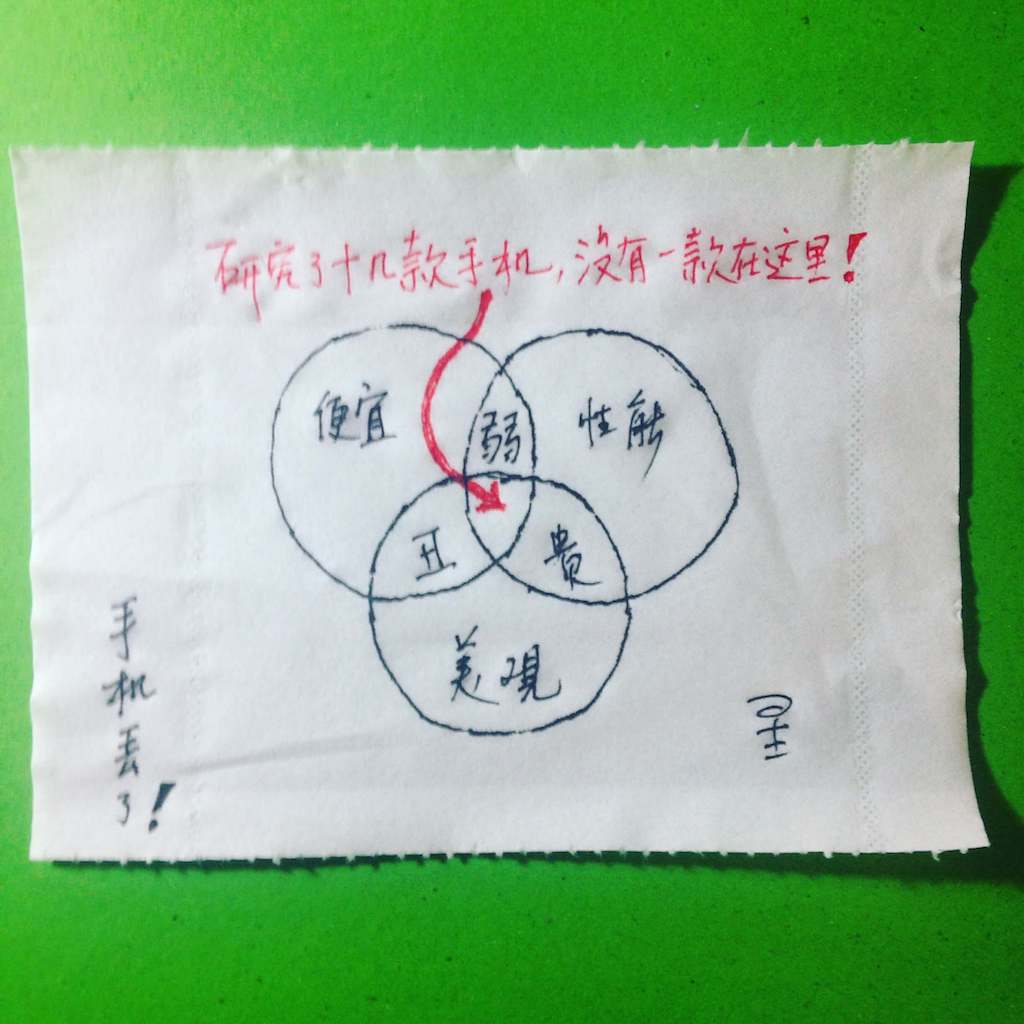 研究了十几款手机,没有一款在这里!
便宜
弱
性能
丑
贵
美观
手机丢了!